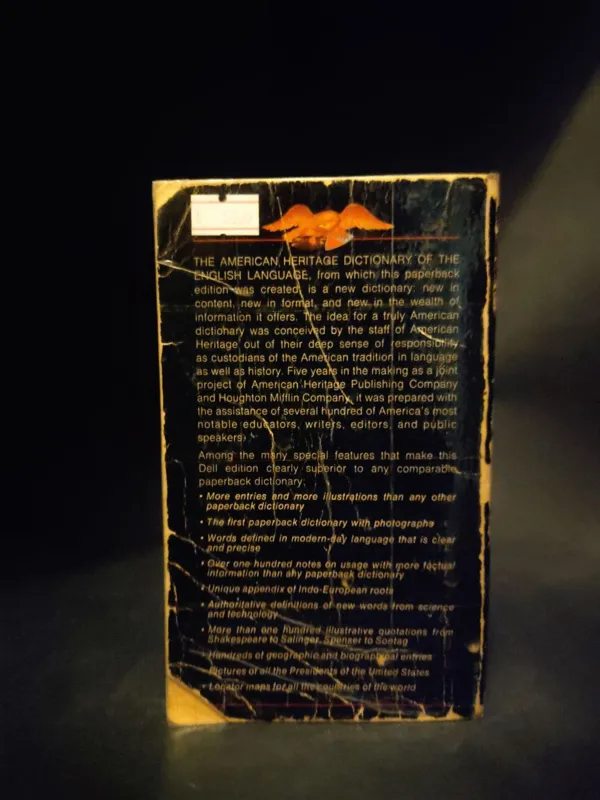 THE AMERICAN HERITAGE DICTIONARY OF THE
ENGLISH LANGUAGE, from which this paperback
edition was created, is a new dictionary: new in
content, new in format, and new in the wealth of
information it offers. The idea for a truly American
dictionary was conceived by the staff of American
Heritage out of their deep sense of responsibility
as custodians of the American tradition in language
as well as history. Five years in the making as a joint
project of American Heritage Publishing Company
and Houghton Mifflin Company, it was prepared with
the assistance of several hundred of America's most
notable educators, writers, editors, and public
speakers.
Among the many special features that make this
Dell edition clearly superior to any comparable
paperback dictionary:
• More entries and more illustrations than any other
paperback dictionary
• The first paperback dictionary with photographs
• Words defined in modern-day language that is clear
and precise
• Over one hundred notes on usage with more factual
information than any paperback dictionary
• Unique appendix of Indo-European roots
• Authoritative definitions of new words from science
and technology
• More than one hundred illustrative quotations from
Shakespeare to Salinger, Spenser to Sontag
• Hundreds of geographic and biographical entries
• Pictures of all the Presidents of the United States
• Locator maps for all the countries of the world